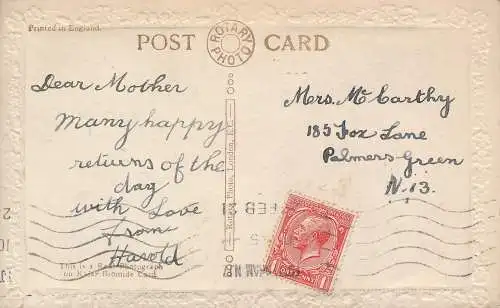 Printed in England.
POST CARD
ROTARY
PHOTO
Dear Mother
Many happy
returns of the
day
with Love
from
Harold
This is a Real Photograph
on Kaier Bromide Card.
Rotary Photo, London, E.C.
Mrs. McCarthy
185 Fox Lane
Palmers Green
N.13.
FEB 21